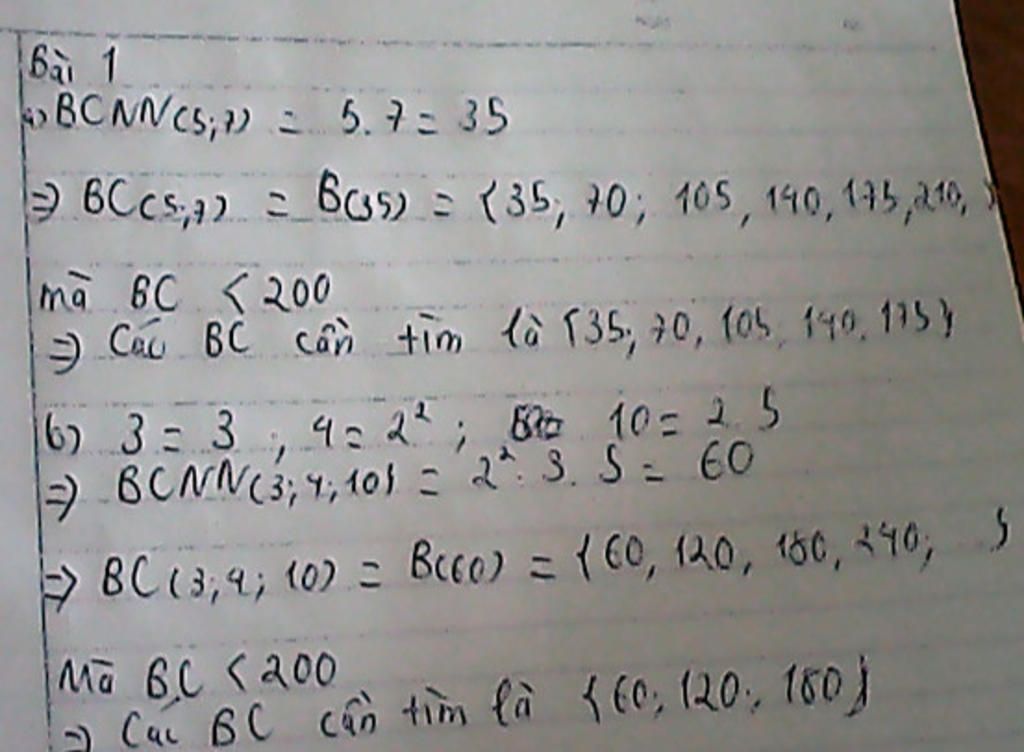 Bài 1
a) BCNN(5;7) = 5.7 = 35
=> BC(5;7) = B(35) = {35; 70; 105, 140, 175, 210, }
mà BC < 200
=> Các BC cần tìm là {35; 70, 105, 140, 175}
b) 3 = 3 , 4 = 2² ; 10 = 2.5
=> BCNN(3; 4; 10) = 2². 3. 5 = 60
=> BC(3; 4; 10) = B(60) = {60, 120, 180, 240; }
Mà BC < 200
=> Các BC cần tìm là {60; 120; 180}